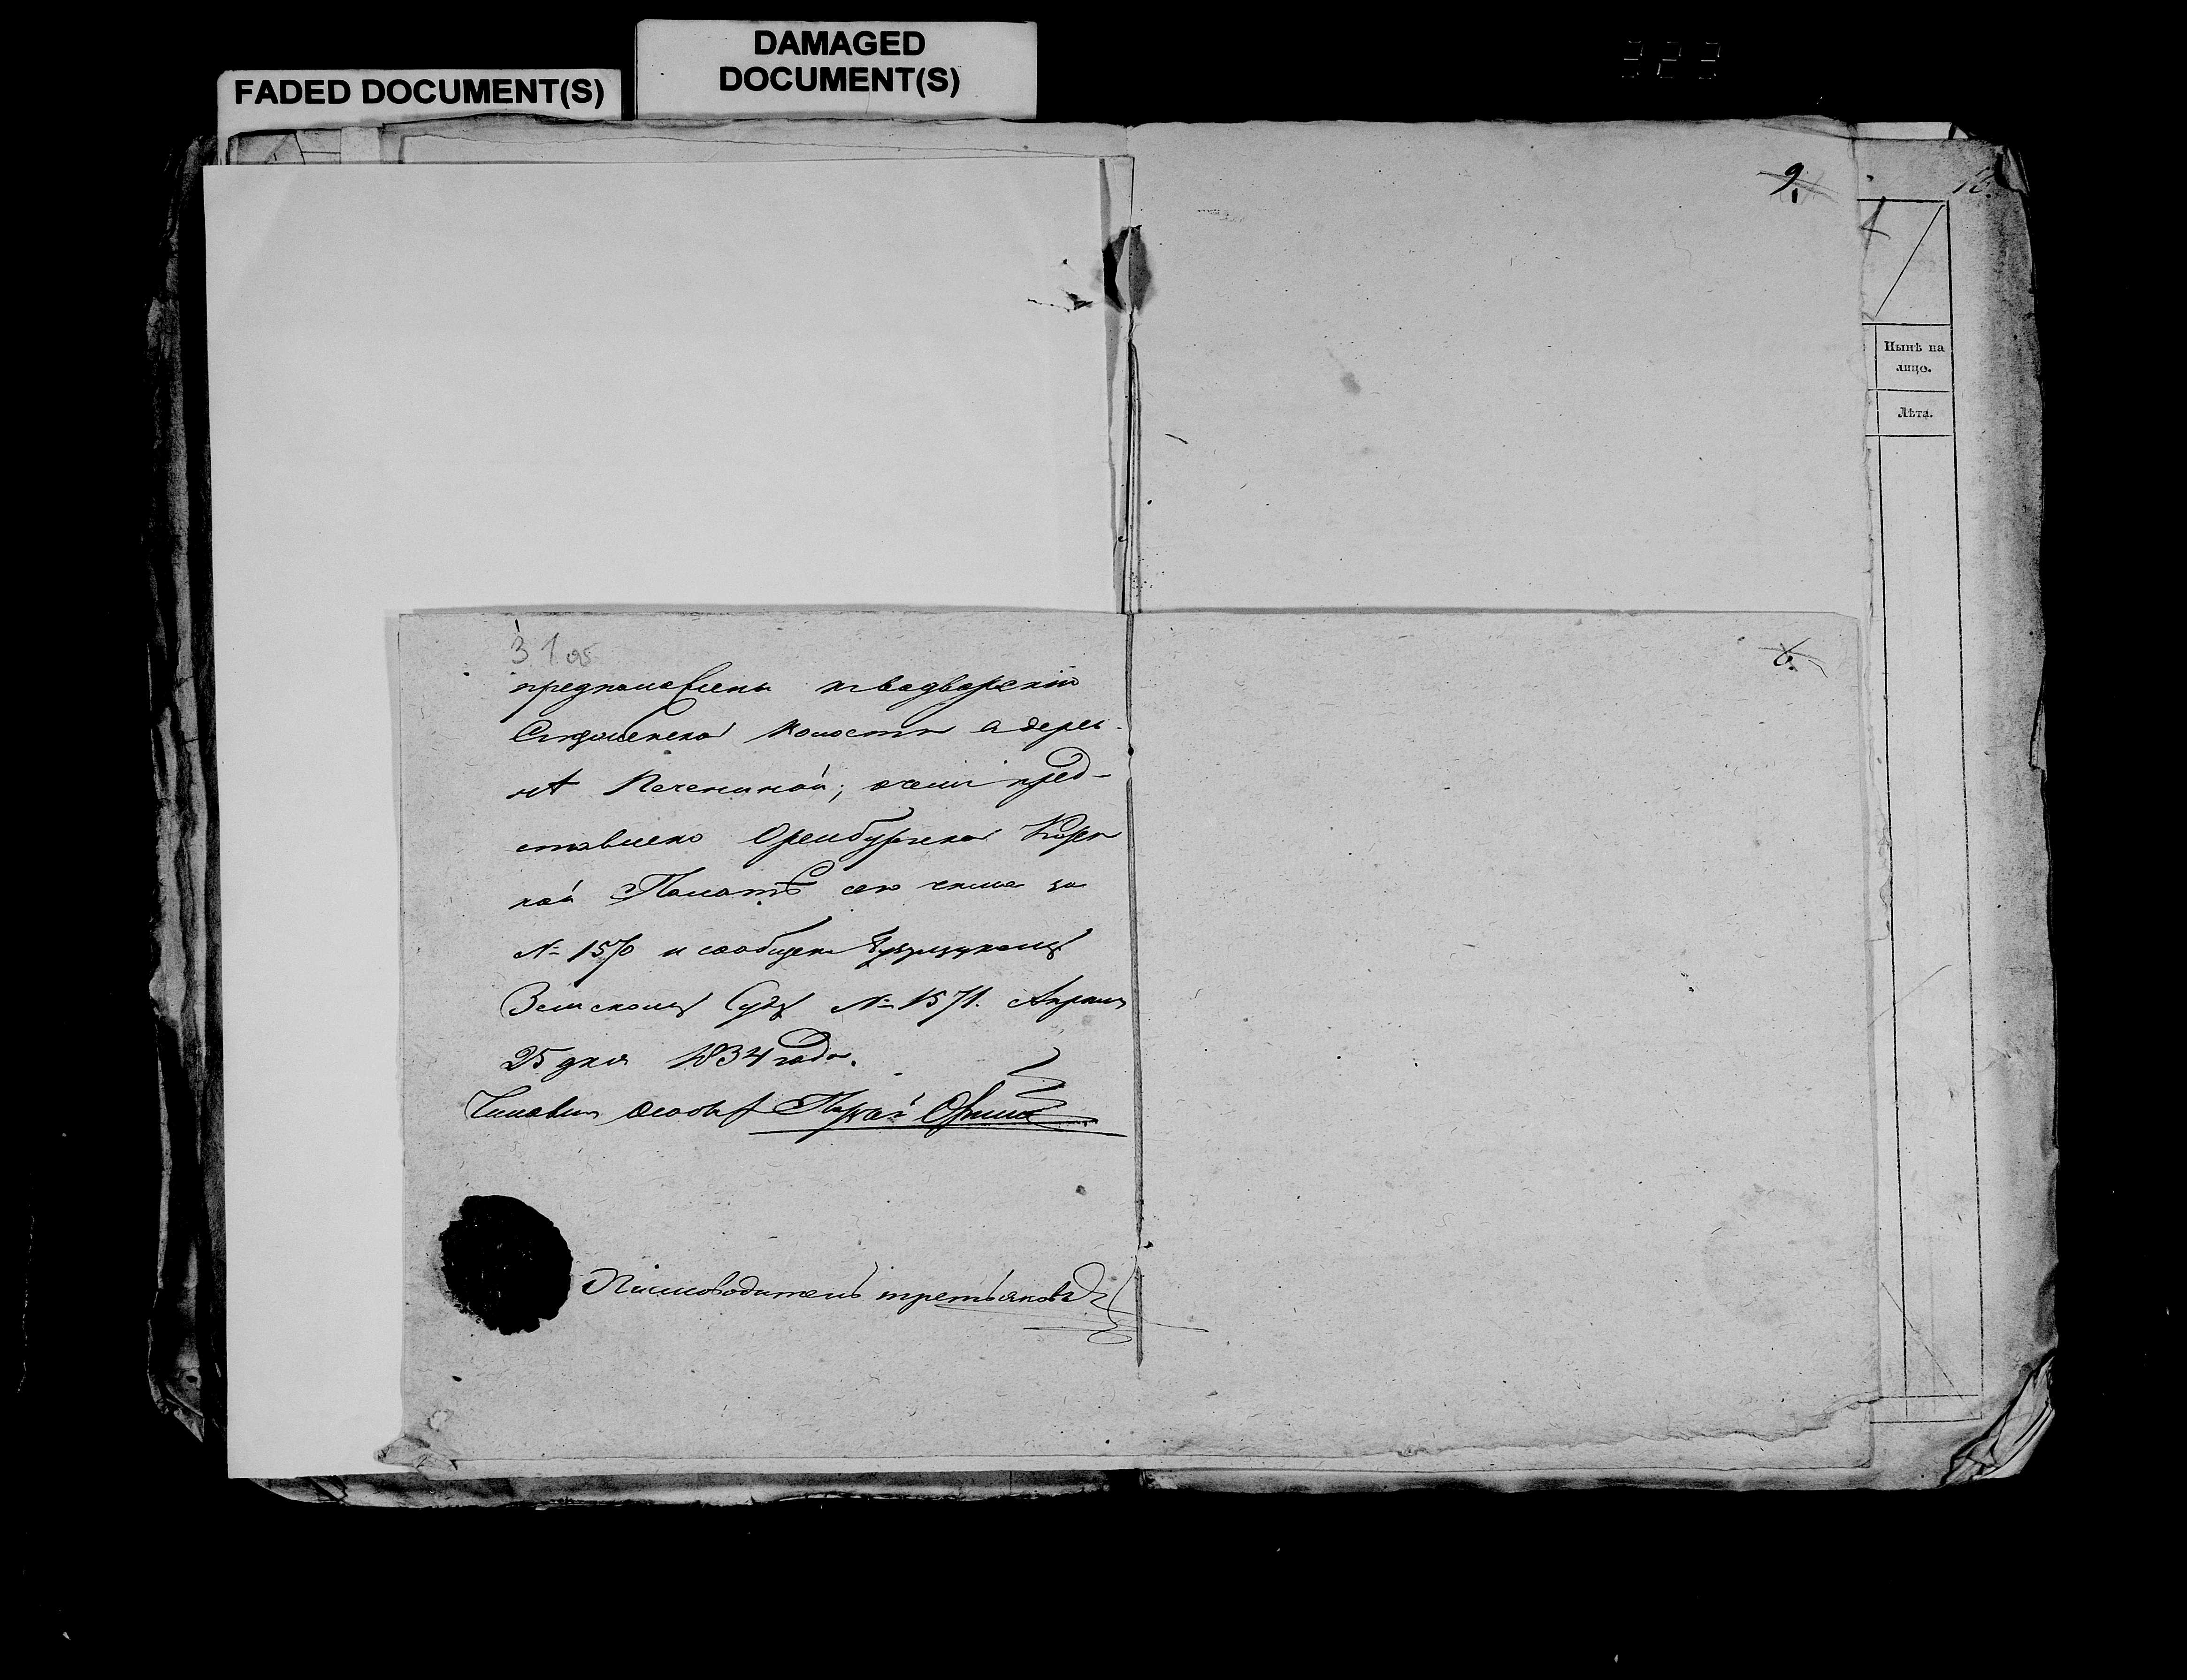 FADED DOCUMENT(S)
DAMAGED
DOCUMENT(S)
9.
Нынѣ на
лицо.
Лѣта.
3
6.
волости в дерев-
нѣ Печениной; о чем пред-
ставлено Оренбургской Казен
ной Палатѣ сего числа за
№ 1570 и сообщено Бузулукскому
Земскому Суду № 1571. Апреля
25 дня 1834 года.
Писмоводитель третьяковъ